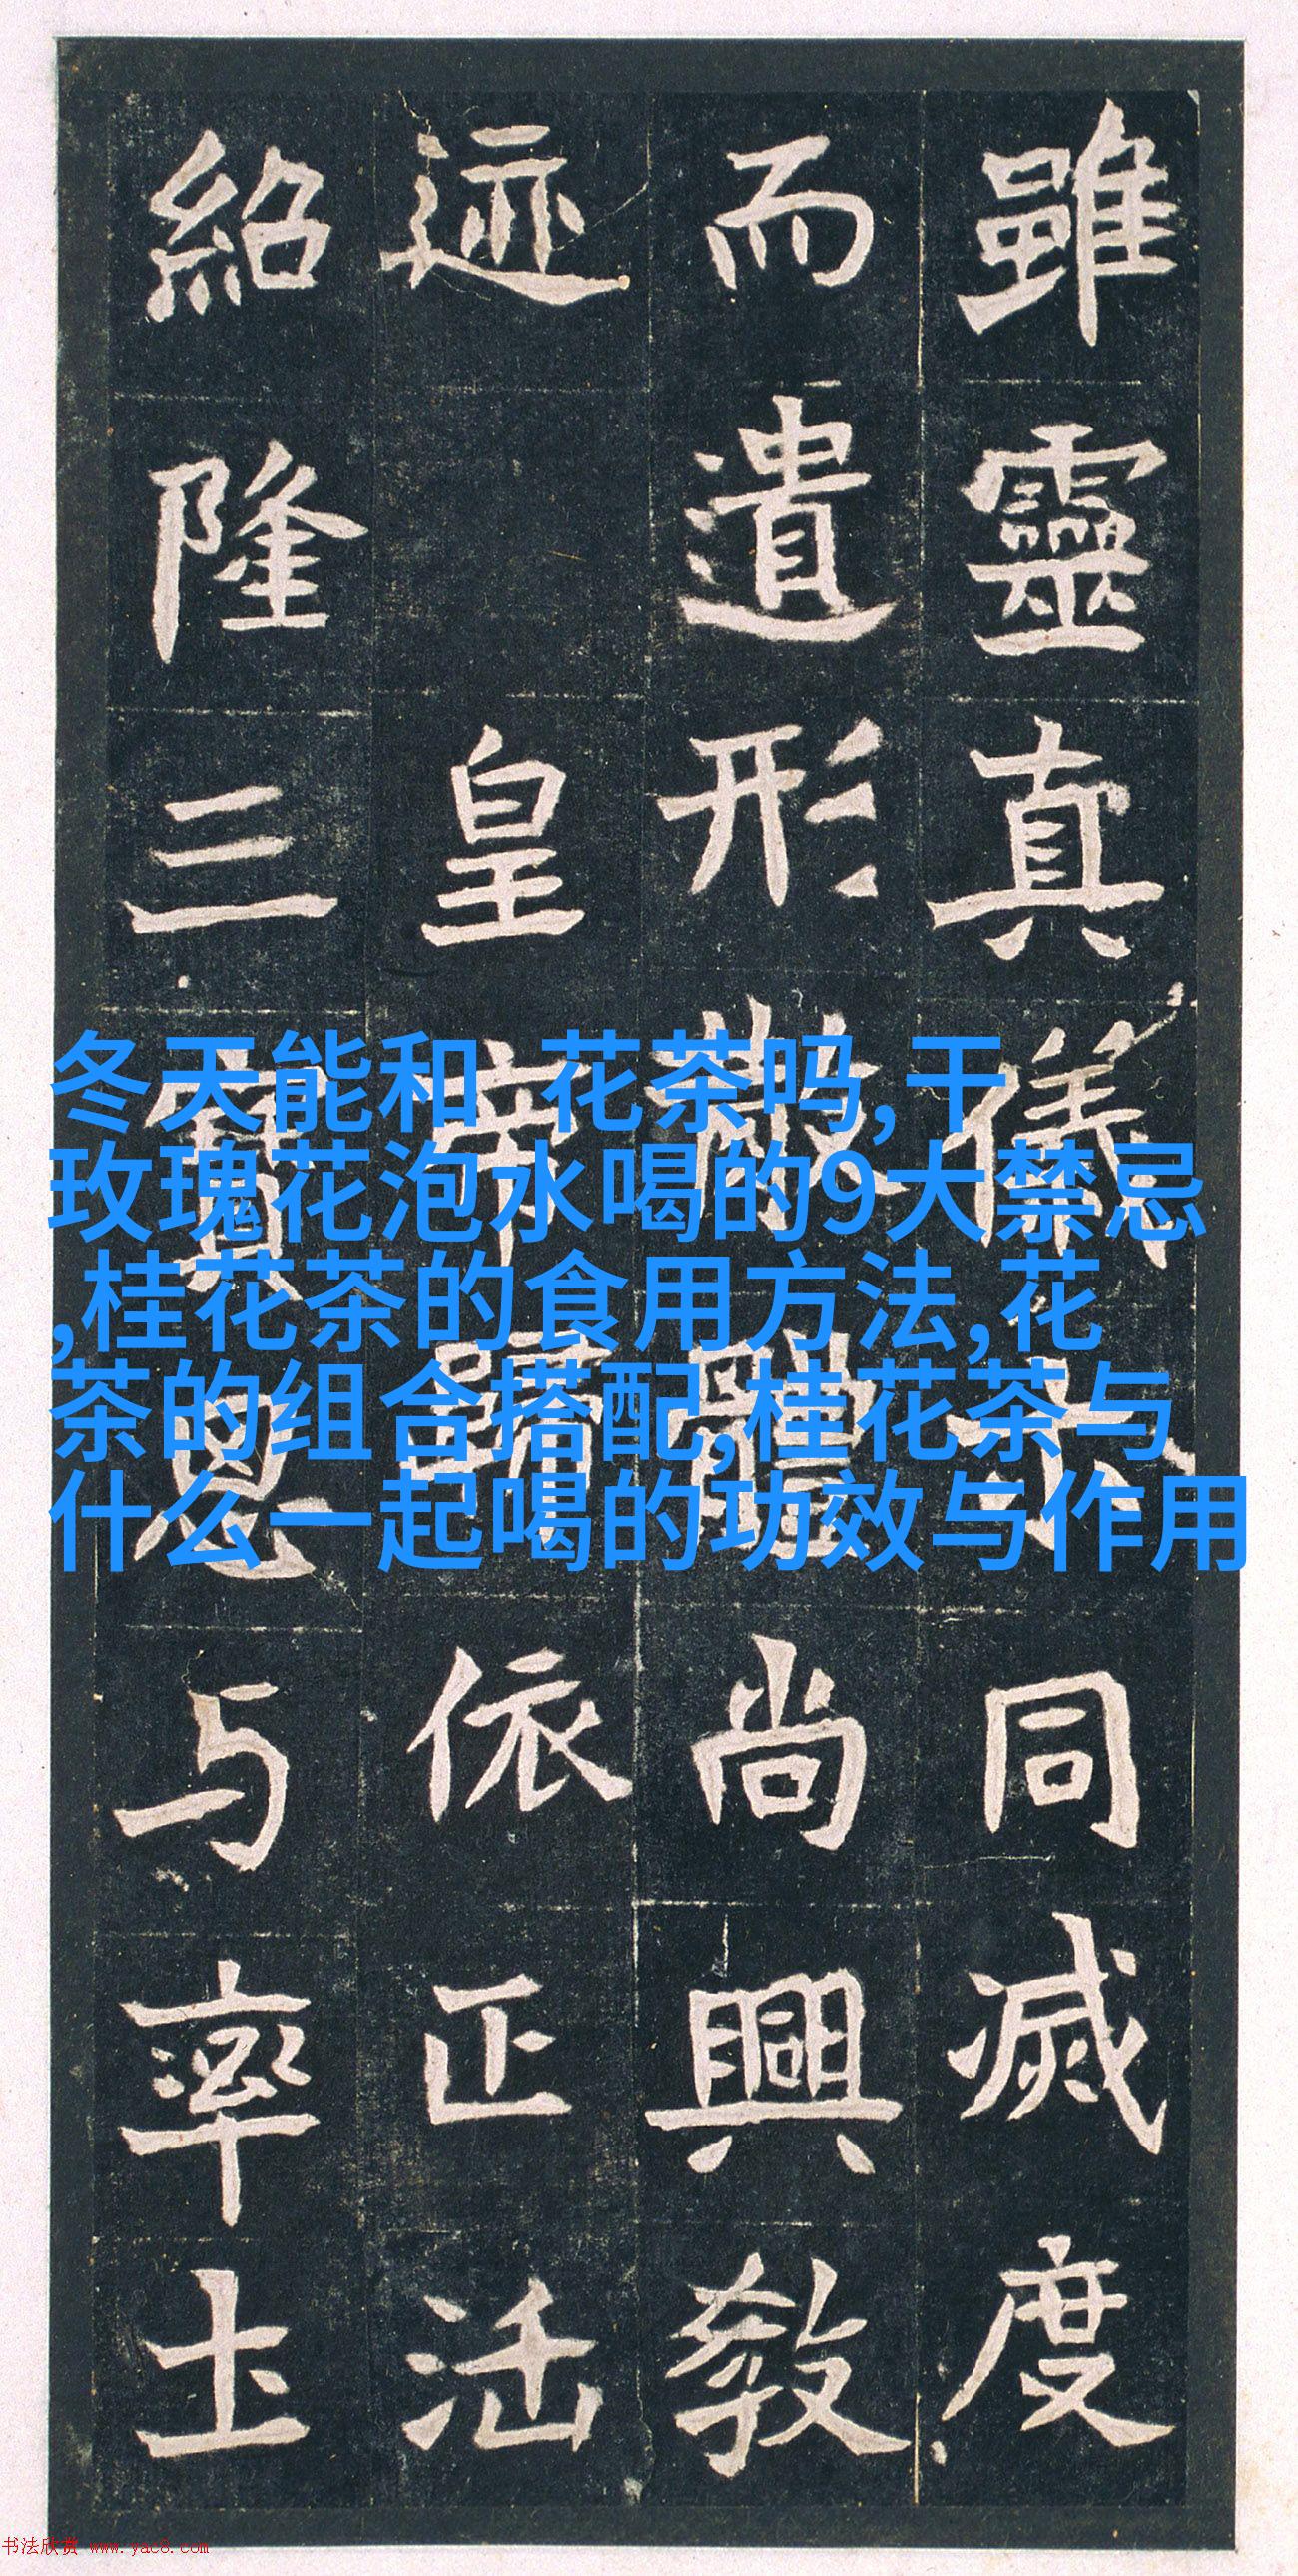 雖靈真儀同滅度
而遺形散體尚興教
迹 皇帝歸依正法
紹隆三寶恩与率土
冬天能和 花茶吗,干
玫瑰花泡水喝的9大禁忌
,桂花茶的食用方法,花
茶的组合搭配,桂花茶与
什么一起喝的功效与作用
书法欣赏 www.yac8.com